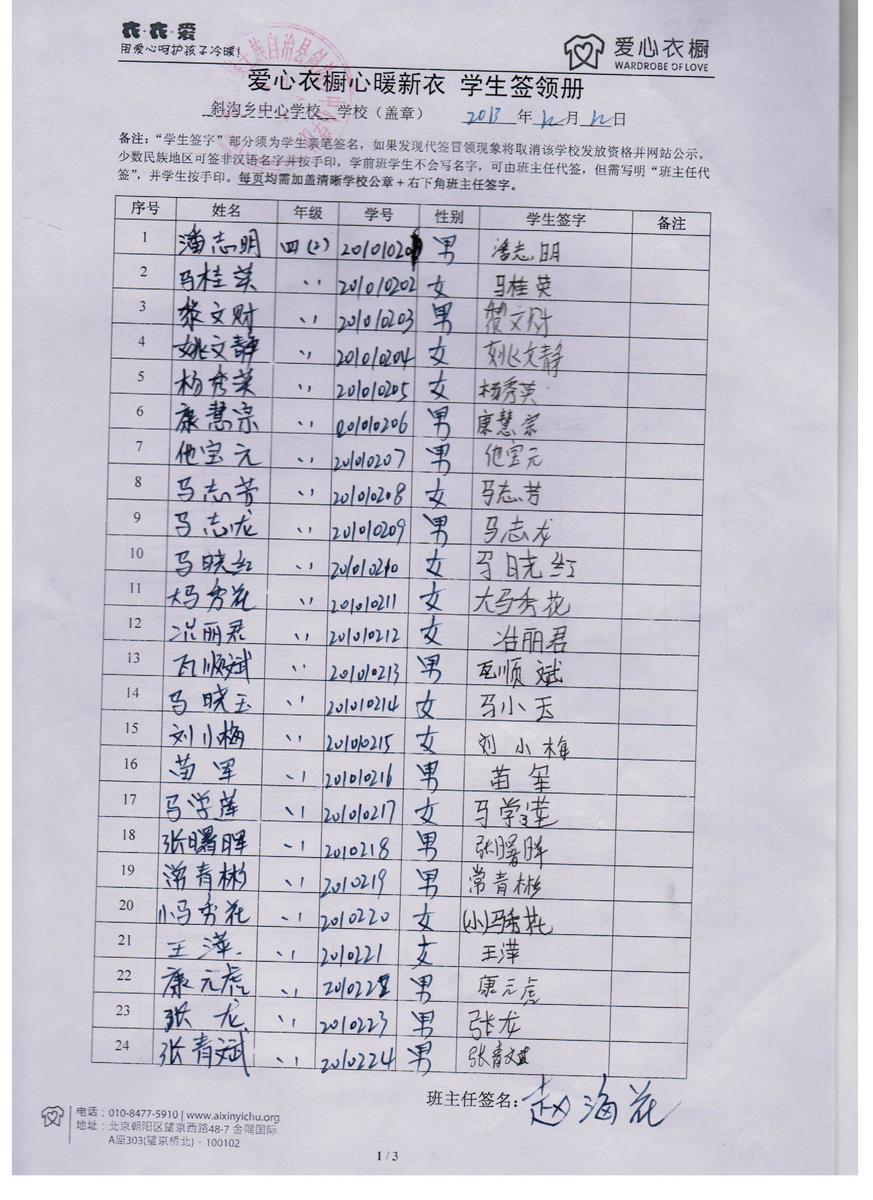 衣·衣·爱
用爱心呵护孩子冷暖!
爱心衣橱
WARDROBE OF LOVE
爱心衣橱心暖新衣 学生签领册
斜沟乡中心学校 学校（盖章） 2013 年 12 月 12 日
备注：“学生签字”部分须为学生亲笔签名，如果发现代签冒领现象将取消该学校发放资格并网站公示。
少数民族地区可签非汉语名字并按手印，学前班学生不会写名字，可由班主任代签，但需写明“班主任代
签”，并学生按手印。每页均需加盖清晰学校公章+右下角班主任签字。
序号 姓名 年级 学号 性别 学生签字 备注
1 潘志明 四(2) 201010201 男 潘志明
2 马桂英 〃 201010202 女 马桂英
3 黎文财 〃 201010203 男 黎文财
4 姚文静 〃 201010204 女 姚文静
5 杨秀英 〃 201010205 女 杨秀英
6 康慧宗 〃 201010206 男 康慧宗
7 他宝元 〃 201010207 男 他宝元
8 马志芳 〃 201010208 女 马志芳
9 马志龙 〃 201010209 男 马志龙
10 马晓红 〃 201010210 女 马晓红
11 大马秀花 〃 201010211 女 大马秀花
12 丽君 〃 201010212 女 丽君
13 顺斌 〃 201010213 男 顺斌
14 马晓玉 〃 201010214 女 马小玉
15 刘小梅 〃 201010215 女 刘小梅
16 苗军 〃 201010216 男 苗军
17 马学莲 〃 201010217 女 马学莲
18 张曙晖 〃 2010218 男 张曙晖
19 常青彬 〃 2010219 男 常青彬
20 小马秀花 〃 2010220 女 (小)马秀花
21 王萍 〃 2010221 女 王萍
22 康元虎 〃 2010222 男 康元虎
23 张龙 〃 2010223 男 张龙
24 张青斌 〃 2010224 男 张青斌
班主任签名：赵海花
电话：010-8477-5910 | www.aixinyichu.org
地址：北京朝阳区望京西路48-7 金隅国际
A座303(望京桥北)·100102
1 / 3